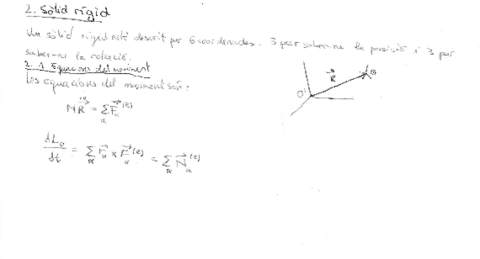 2. Sòlid rígid
Un sòlid rígid està descrit per 6 coordenades. 3 per saber-ne la posició i 3 per
saber-ne la rotació.
2.1 Equacions del moviment
Les equacions del moviment són:
M\ddot{\vec{R}} = \sum_α \vec{F}_α^{(e)}
\frac{dL_o}{dt} = \sum_α \vec{r}_α × \vec{F}_α^{(e)} = \sum_α \vec{N}_α^{(e)}
O'
\vec{R}